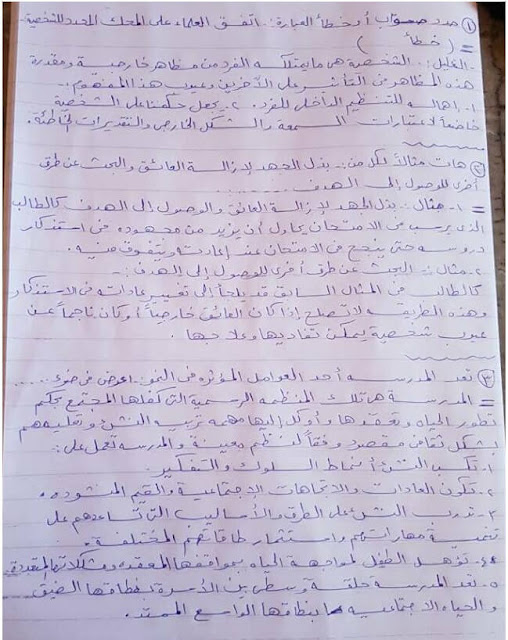 ① حدد صواب أو خطأ العبارة: اتفق العلماء على المحك المحدد للشخصية
= ( خطأ )
- التعليل: الشخصية هى ما يمتلكه الفرد من مظاهر خارجية ومقدرة
هذه المظاهر فى التأثير على الآخرين وعيوب هذا المفهوم:
١- إهماله للتنظيم الداخلى للفرد. ٢- يجعل حكمنا على الشخصية
خاضعاً لاعتبارات السمعة والشكل الخارجى والتقديرات الخاطئة.
② هات مثالاً لكل من: بذل الجهد لإزالة العائق والبحث عن طرق
أخرى للوصول إلى الهدف
= ١- مثال: بذل الجهد لإزالة العائق والوصول إلى الهدف كالطالب
الذى يرسب فى الامتحان يحاول أن يزيد من مجهوده فى استذكار
دروسه حتى ينجح فى الامتحان عند إعادته ويتفوق فيه.
٢- مثال: البحث عن طرق أخرى للوصول إلى الهدف:-
كالطالب فى المثال السابق قد يلجأ إلى تغيير عاداته فى الاستذكار
وهذه الطريقه لا تصلح إذا كان العائق خارجياً أو كان ناجماً عن
عيوب شخصية يمكن تفاديها وعلاجها.
③ تعد المدرسه أحد العوامل المؤثره فى النمو: اعرض فى ضوء
= المدرسة هى تلك المنظمه الرسمية التى كفلها المجتمع بحكم
تطور الحياه وتعقدها وأوكل إليها مهمه تربيه النشئ وتعليمهم
بشكل ثقافى مقصود وفقاً لنظم معينة والمدرسه تعمل على:
١- تكسب النشئ أنماط السلوك والتفكير.
٢- تكون العادات والاتجاهات الاجتماعية والقيم المنشوده.
٣- تدرب النشئ على الطرق والأساليب التى تساعدهم على
تنمية مهاراتهم واستثمار طاقاتهم المختلفة.
٤- تؤهل الطفل لمواجهة الحياه بمواقفها المعقده ومشكلاتها المتعددة.
٥- تعد المدرسة حلقة وسطى بين الأسرة بنطاقها الضيق
والحياه الاجتماعيه بنطاقها الواسع الممتد.